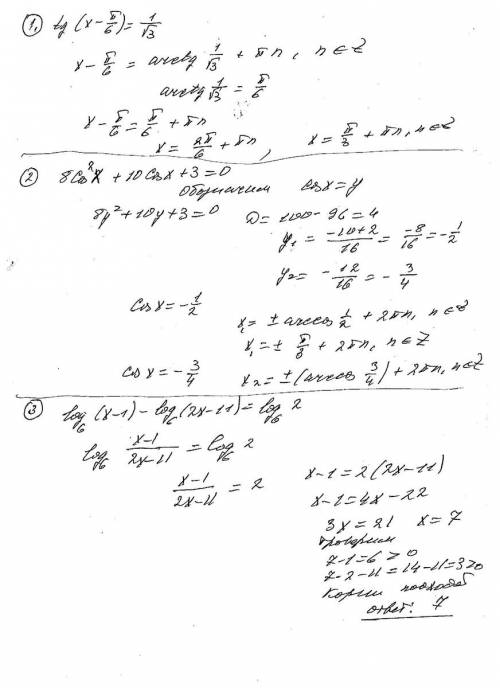 1, tg (x - π/6) = 1/√3
x - π/6 = arctg 1/√3 + πn, n ∈ Z
arctg 1/√3 = π/6
x - π/6 = π/6 + πn
x = 2π/6 + πn, x = π/3 + πn, n ∈ Z
2 8Cos²x + 10 Cosx + 3 = 0
Обозначим cosx = y
8y² + 10y + 3 = 0 D = 100 - 96 = 4
y₁ = (-10+2)/16 = -8/16 = -1/2
y₂ = -12/16 = -3/4
cosx = -1/2 x₁ = ± arccos 1/2 + 2πn, n ∈ Z
x₁ = ± π/3 + 2πn, n ∈ Z
cosx = -3/4 x₂ = ± (arccos 3/4) + 2πn, n ∈ Z
3 log₆ (x-1) - log₆ (2x-11) = log₆ 2
log₆ (x-1)/(2x-11) = log₆ 2
(x-1)/(2x-11) = 2 x-1 = 2(2x-11)
x-1 = 4x-22
3x = 21 x = 7
Проверим
7-1 = 6 > 0
7·2-11 = 14-11 = 3 > 0
Корни подходят
ответ: 7